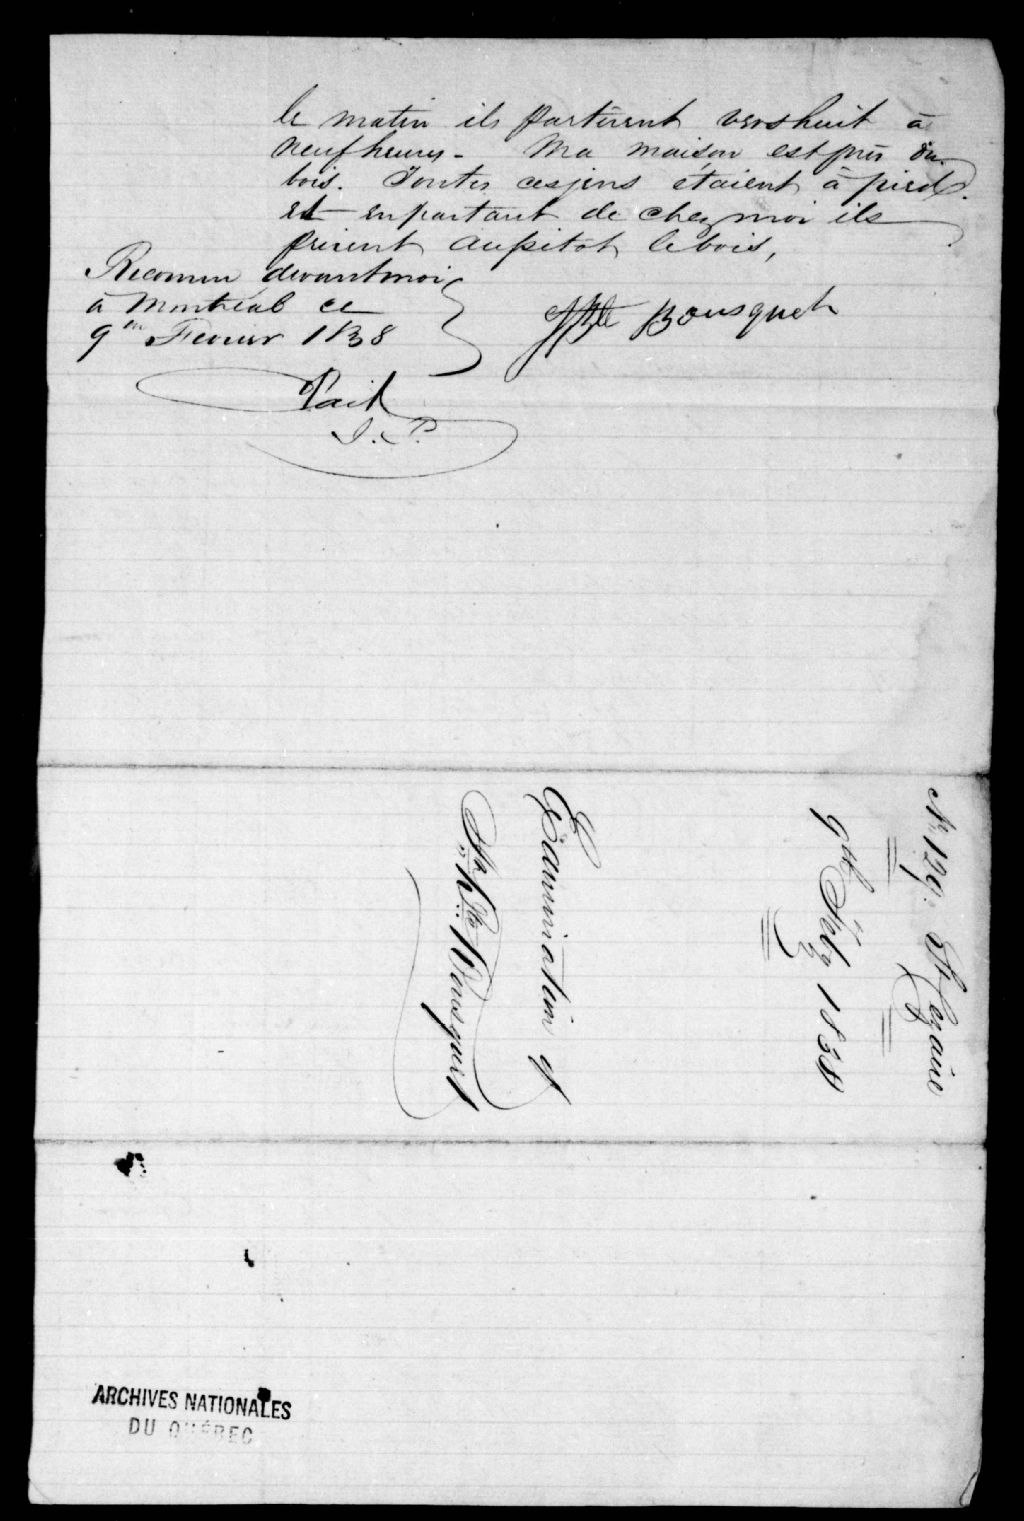 le matin ils partirent vers huit à
neuf heures - Ma maison est près du
bois. Toutes ces jens étaient à pied.
et en partant de chez moi ils
prirent aussitot le bois,
Reconnu devant moi
à Montréal ce
9me Fevrier 1838
JBte Bousquet
J. P.
No. 129. St Cezaire
9th Feby 1838
Examination of
Jn Bte Bousquet
ARCHIVES NATIONALES
DU QUÉBEC